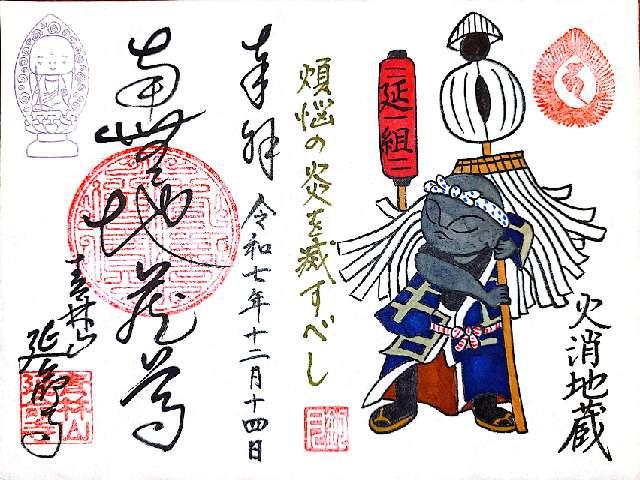 火消地蔵
二延一組二
煩悩の炎を滅すべし
奉拝
令和七年十二月十四日
南無地蔵尊
青林山
延命寺